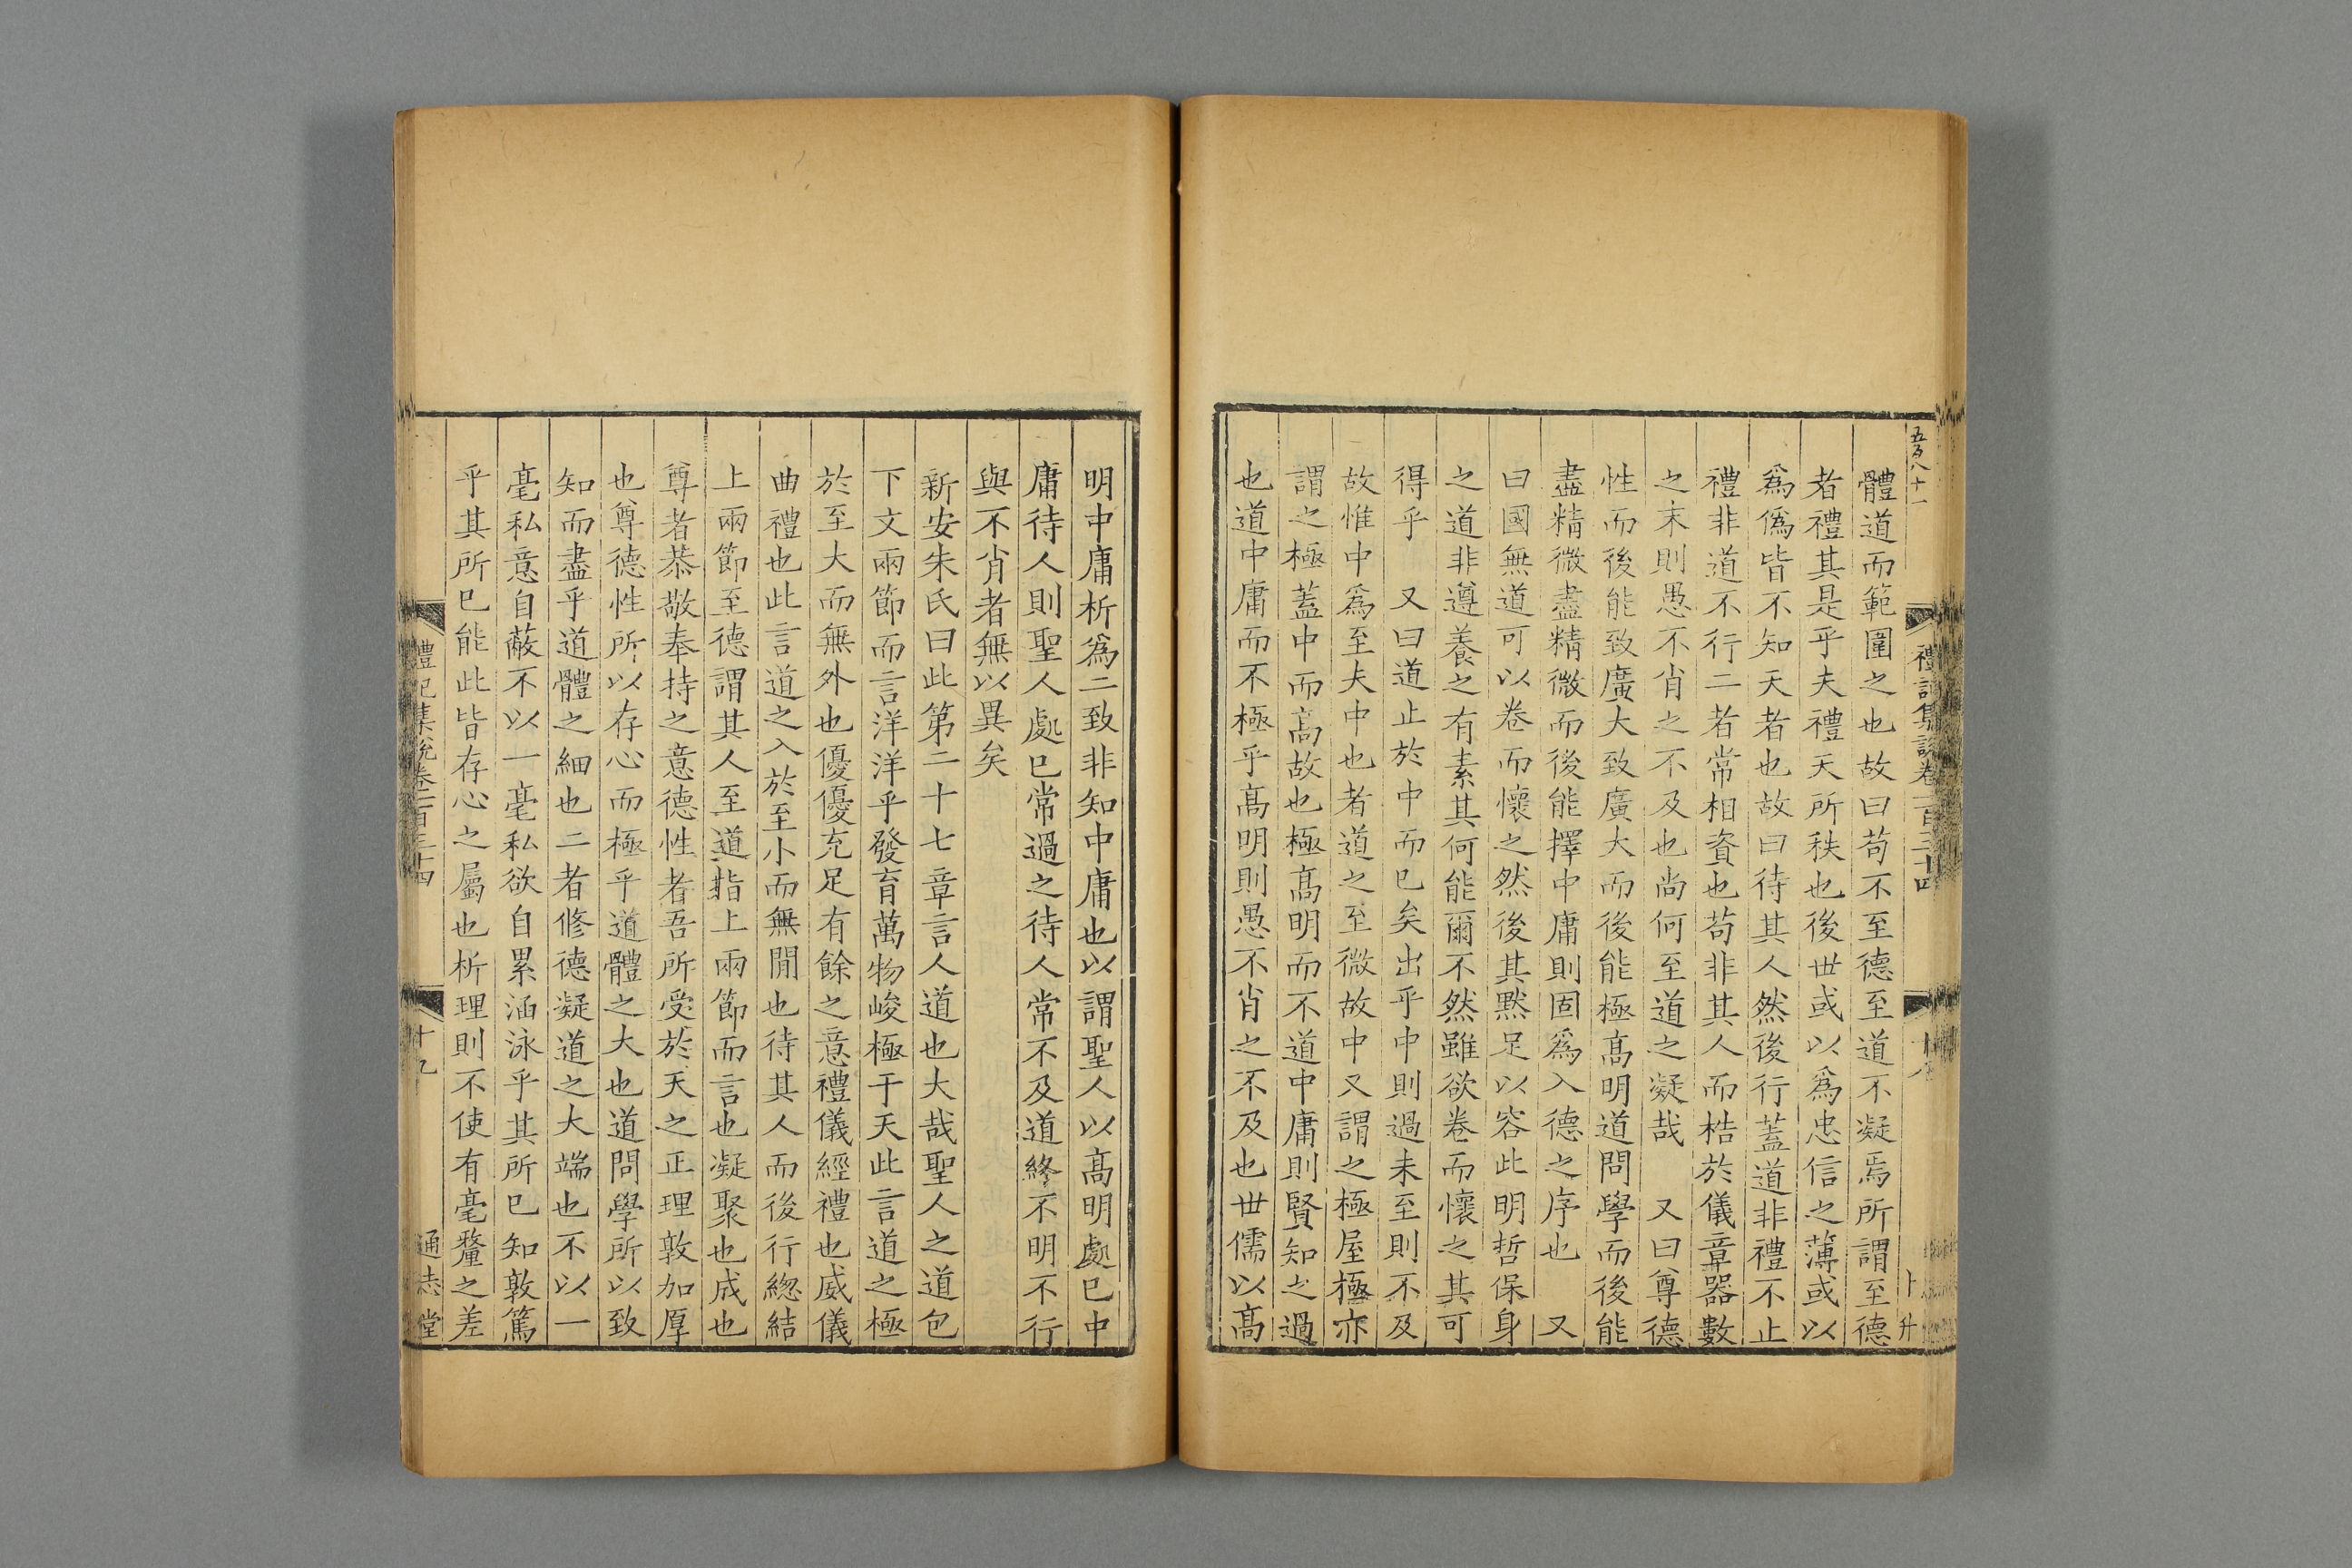 五百八十一
禮記集說卷一百三十四
十八
卜升
體道而範圍之也故曰苟不至德至道不凝焉所謂至德
者禮其是乎夫禮天所秩也後世或以爲忠信之薄或以
爲僞皆不知天者也故曰待其人然後行蓋道非禮不止
禮非道不行二者常相資也苟非其人而梏於儀章器數
之末則愚不肖之不及也尚何至道之凝哉　又曰尊德
性而後能致廣大致廣大而後能極髙明道問學而後能
盡精微盡精微而後能擇中庸則固爲入德之序也　又
曰國無道可以卷而懷之然後其黙足以容此明哲保身
之道非遵養之有素其何能爾不然雖欲卷而懷之其可
得乎　又曰道止於中而已矣出乎中則過未至則不及
故惟中爲至夫中也者道之至微故中又謂之極屋極亦
謂之極蓋中而髙故也極髙明而不道中庸則賢知之過
也道中庸而不極乎髙明則愚不肖之不及也世儒以髙
明中庸析爲二致非知中庸也以謂聖人以髙明處已中
庸待人則聖人處已常過之待人常不及道終不明不行
與不肖者無以異矣
新安朱氏曰此第二十七章言人道也大哉聖人之道包
下文兩節而言洋洋乎發育萬物峻極于天此言道之極
於至大而無外也優優充足有餘之意禮儀經禮也威儀
曲禮也此言道之入於至小而無閒也待其人而後行緫結
上兩節至德謂其人至道指上兩節而言也凝聚也成也
尊者恭敬奉持之意德性者吾所受於天之正理敦加厚
也尊德性所以存心而極乎道體之大也道問學所以致
知而盡乎道體之細也二者修德凝道之大端也不以一
毫私意自蔽不以一毫私欲自累涵泳乎其所已知敦篤
乎其所已能此皆存心之屬也析理則不使有毫釐之差
禮記集說卷一百三十四
十九
通志堂